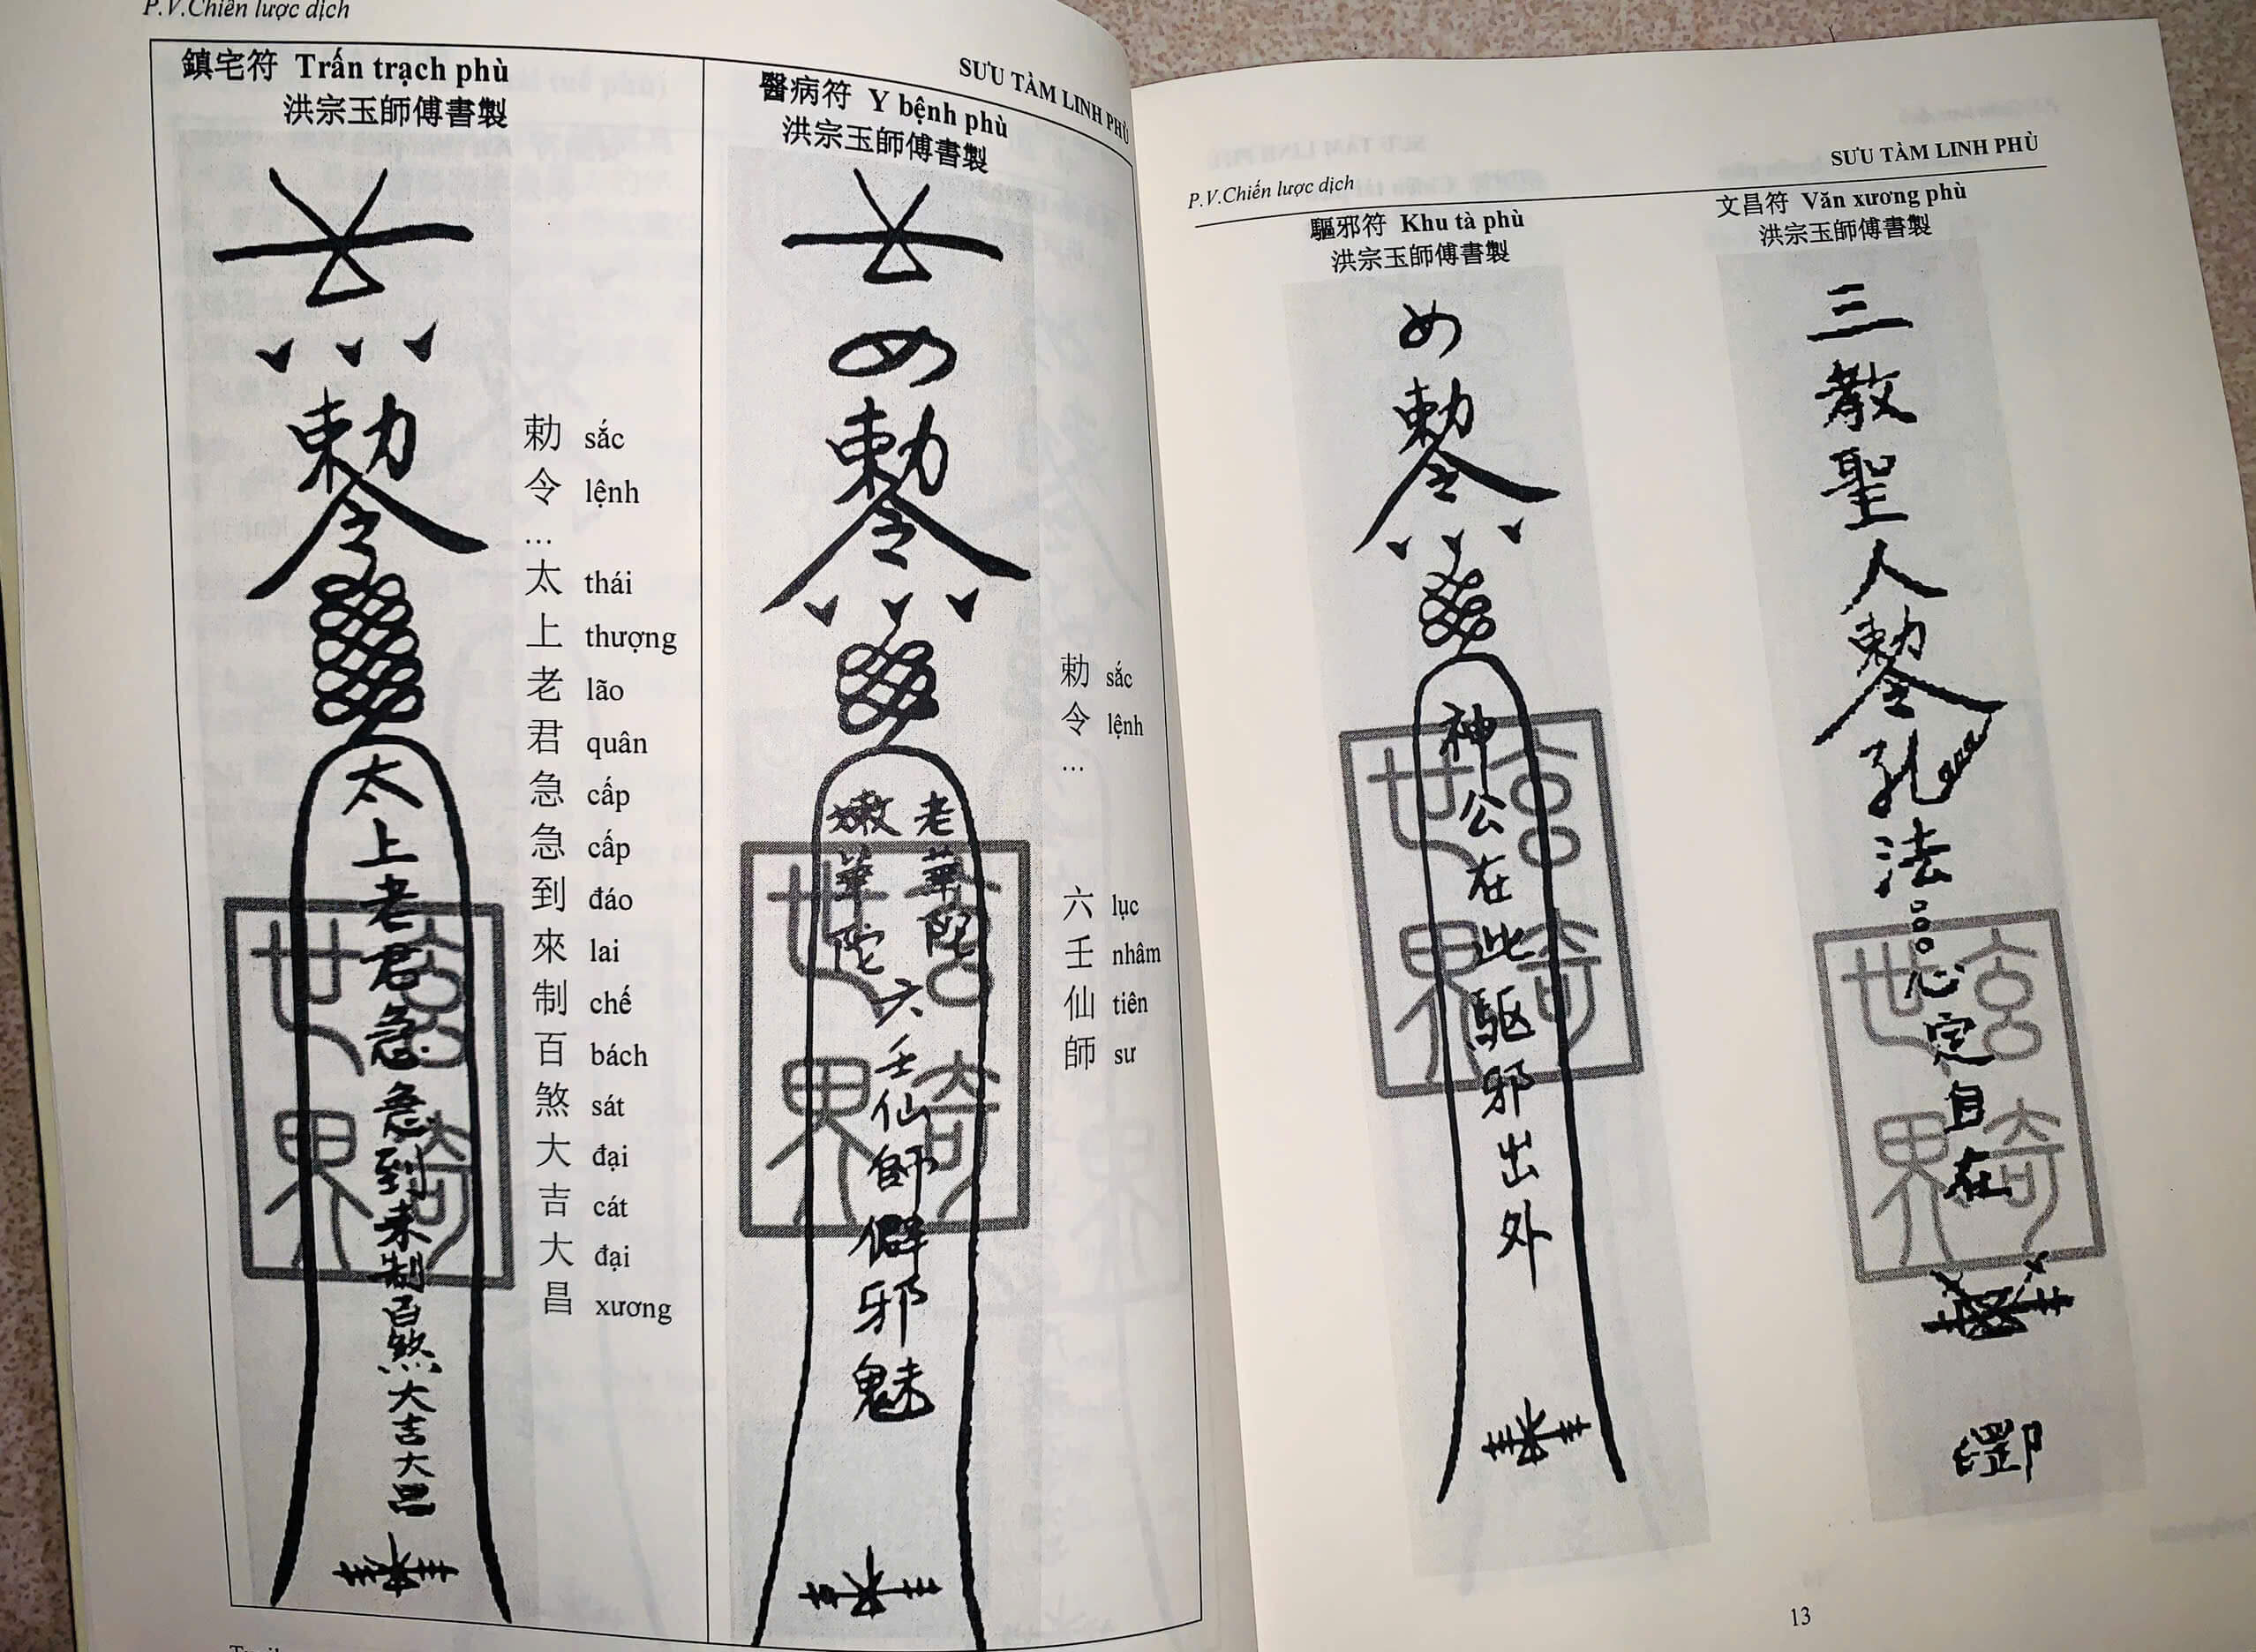 P.V.Chiến lược dịch
SƯU TẦM LINH PHÙ
鎮宅符 Trấn trạch phù
洪宗玉師傅書製
勅令
太上老君急急到來制百煞大吉大昌
勅 sắc
令 lệnh
...
太 thái
上 thượng
老 lão
君 quân
急 cấp
急 cấp
到 đáo
來 lai
制 chế
百 bách
煞 sát
大 đại
吉 cát
大 đại
昌 xương
宮奇世界
醫病符 Y bệnh phù
洪宗玉師傅書製
勅令
老華陀
華陀
六壬仙師僻邪魅
勅 sắc
令 lệnh
...
六 lục
壬 nhâm
仙 tiên
師 sư
宮奇世界
P.V.Chiến lược dịch
SƯU TẦM LINH PHÙ
驅邪符 Khu tà phù
洪宗玉師傅書製
勅令
神公在此驅邪出外
宮奇世界
文昌符 Văn xương phù
洪宗玉師傅書製
三教聖人勅令孔法心定自在
宮奇世界
13